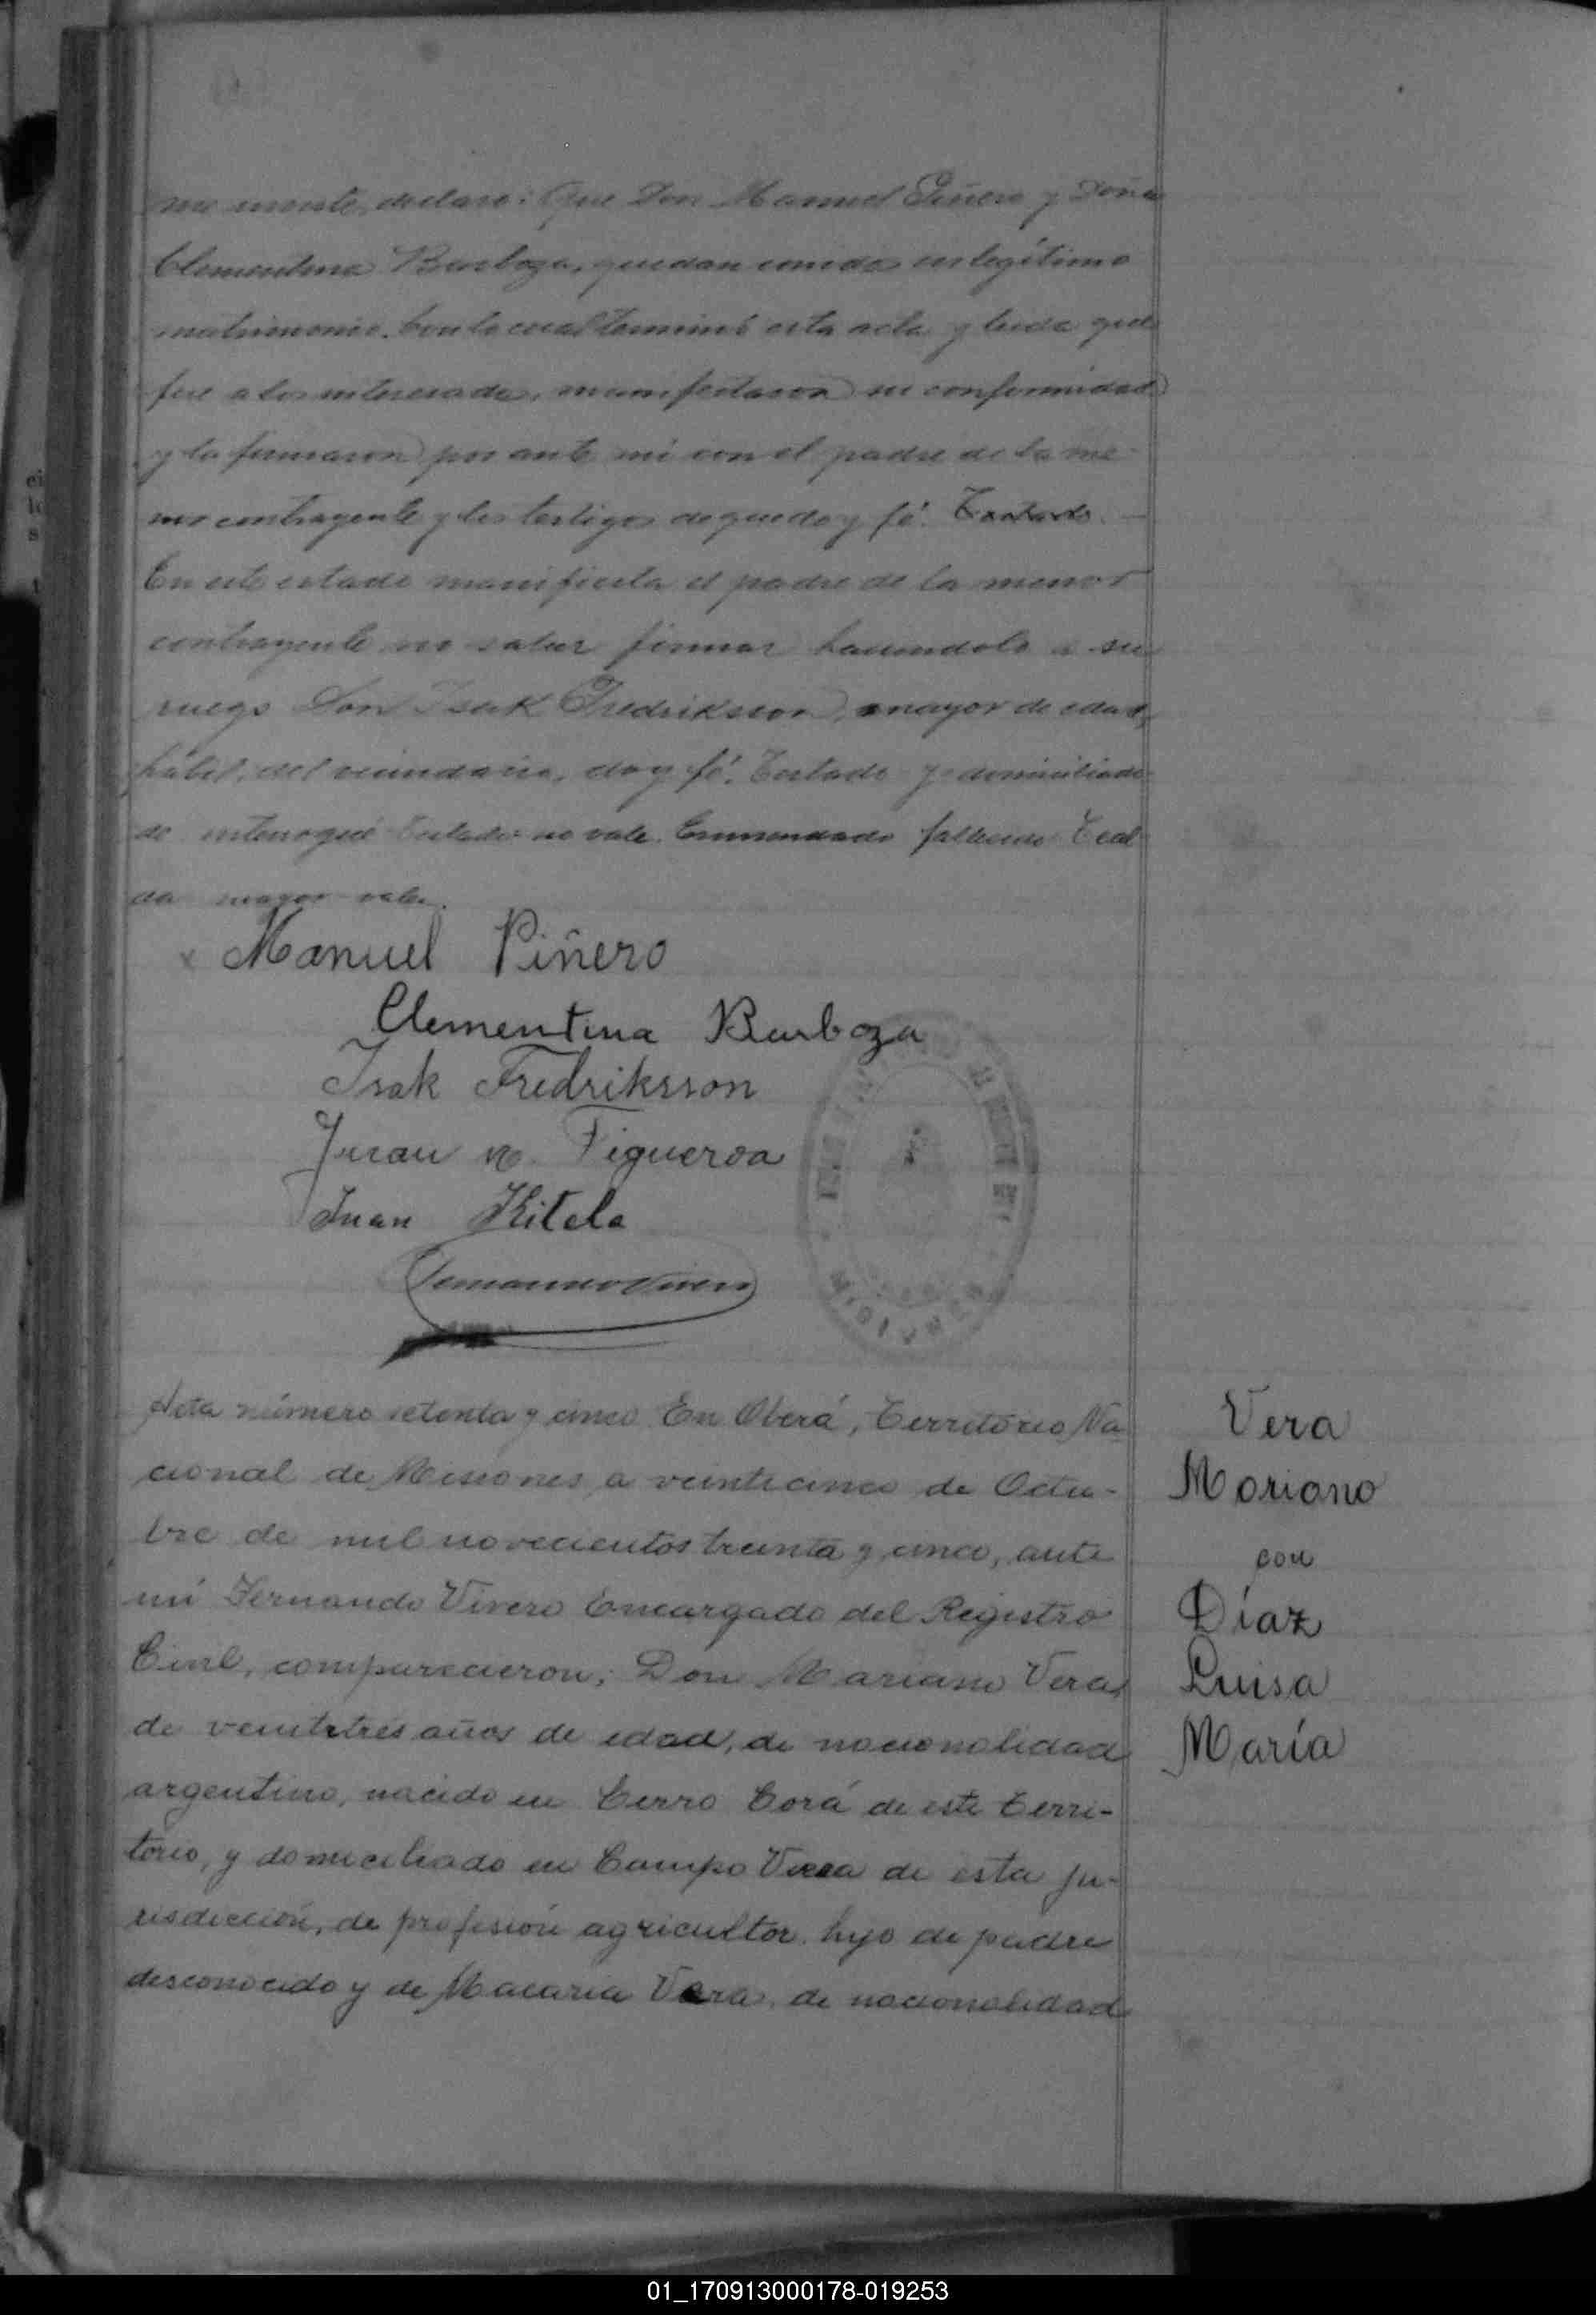 declaro: Que Don Manuel Piñero y Doña
Clementina Barboza, quedan unidos en legítimo
matrimonio. Con lo cual terminó esta acta y leida que
fue a los interesados, manifestaron su conformidad
y la firmaron por ante mí con el padre de la me-
nor contrayente y los testigos de que doy fé. Testado
En este estado manifiesta el padre de la menor
contrayente no saber firmar haciendolo a su
ruego Don Isak Fredriksson, mayor de edad,
hábil, del vecindario, doy fé. Testado y domiciliado
no vale. Enmendado
mayor vale.
Manuel Piñero
Clementina Barboza
Isak Fredriksson
Juan N. Figueroa
Juan Kitela
Fernando Vivero
Acta número setenta y cinco En Oberá, Territorio Na
cional de Misiones, a veinticinco de Octu-
bre de mil novecientos treinta y cinco, ante
mí Fernando Vivero Encargado del Registro
Civil, comparecieron; Don Mariano Vera,
de veintitres años de edad, de nacionalidad
argentino, nacido en Cerro Corá de este Terri-
torio, y domiciliado en Campo Viera de esta ju-
risdicción, de profesión agricultor. hijo de padre
desconocido y de Macaria Vera, de nacionalidad
Vera
Mariano
con
Díaz
Luisa
María
01_170913000178-019253